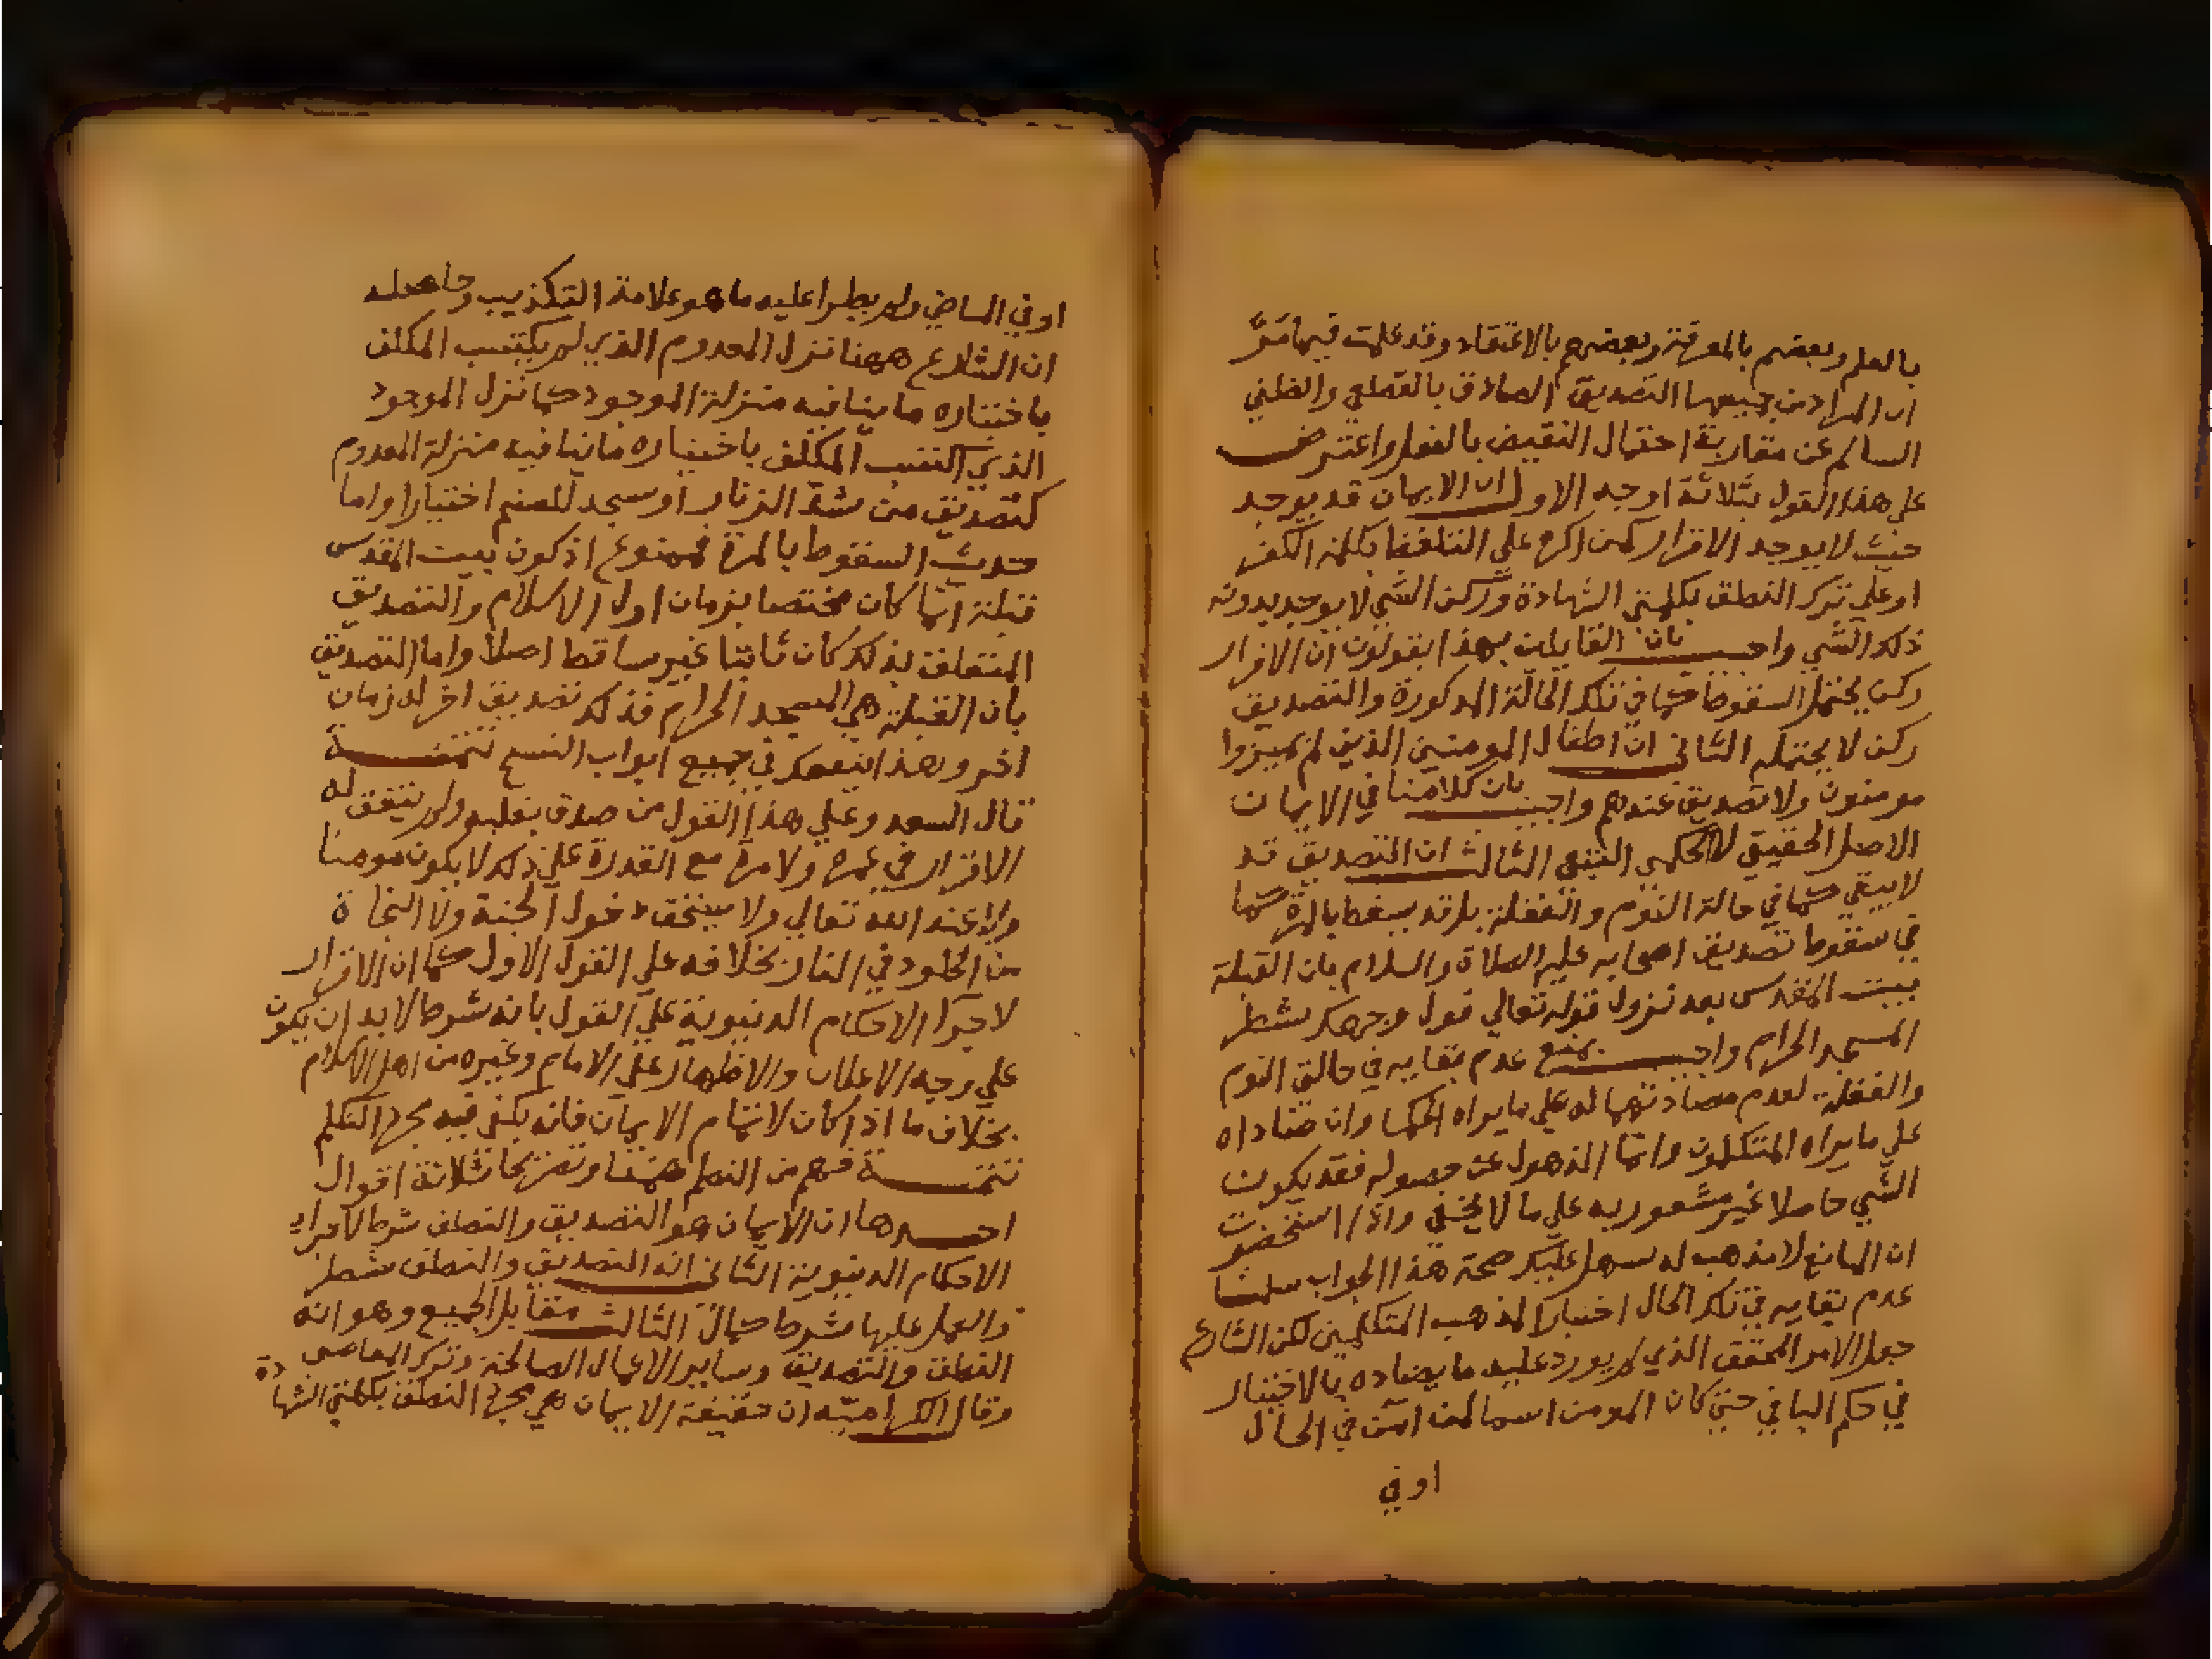 بالعلم وبعضهم بالمعرفة وبعضهم بالاعتقاد وقد علمت فيما مَرَّ
ان المراد من جميعها التصديق الصادق بالقطعي والظني
السالم عن مقاربة احتمال النقيض بالفعل واعترض
علي هذا القول بثلاثة اوجه الاول ان الايمان قد يوجد
حيث لا يوجد الاقرار كمن اكره علي التلفظ بكلمة الكفر
او علي ترك النطق بكلمتي الشهادة وركن الشي لا يوجد بدونه
ذلك الشي واجيب بان القايلين بهذا يقولون ان الاقرار
ركن يحتمل السقوط كما في تلك الحالة المذكورة والتصديق
ركن لا يحتمله الثاني ان اطفال المومنين الذين لم يميزوا
مومنون ولا تصديق عندهم واجيب بان كلامنا في الايمان
الاصلي الحقيقي لا الحكمي التبعي الثالث ان التصديق قد
لا يبقي كما في حالة النوم والغفلة بل قد يسقط بالمرة كما
في سقوط تصديق اصحابه عليه الصلاة والسلام بان القبلة
بيت المقدس بعد نزول قوله تعالي فول وجهك شطر
المسجد الحرام واجيب بمنع عدم بقايه في حالتي النوم
والغفلة لعدم مضادتهما له علي ما يراه الحكما وان ضاداه
علي ما يراه المتكلمون وانما الذهول عن حصوله فقد يكون
الشي حاصلا غير مشعور به علي ما لا يخفي واذا استحضرت
ان المانع لا مذهب له سهل عليك صحة هذا الجواب سلمنا
عدم بقايه في تلك الحال اختيارا لمذهب المتكلمين لكن الشارع
جعل الامر المحقق الذي لم يورد عليه ما يضاده بالاختيار
في حكم الباقي حتي كان المومن اسما لمن امن في الحال
او في
او في الماضي ولم يطرا عليه ما هو علامة التكذيب وحاصله
ان الشارع ههنا نزل المعدوم الذي لم يكتسب المكلف
باختياره ما ينافيه منزلة الموجود كما نزل الموجود
الذي اكتسب المكلف باختياره ما ينافيه منزلة المعدوم
كتصديق من شد الزنار او سجد للصنم اختيارا واما
حديث السقوط بالمرة فممنوع اذ كون بيت المقدس
قبلة انما كان مختصا بزمان اول الاسلام والتصديق
المتعلق بذلك كان ثابتا غير ساقط اصلا واما التصديق
بان القبلة هي المسجد الحرام فذلك تصديق اخر له زمان
اخر وبهذا ينفعك في جميع ابواب النسخ تتمة
قال السعد وعلي هذا القول من صدق بقلبه ولم يتفق له
الاقرار في عمره ولا مرة مع القدرة علي ذلك لا يكون مومنا
ولا عند الله تعالي ولا يستحق دخول الجنة ولا النجاة
من الخلود في النار بخلافه علي القول الاول كما ان الاقرار
لاجرا الاحكام الدنيوية علي القول بانه شرط لا بد ان يكون
علي وجه الاعلان والاظهار علي الامام وغيره من اهل الاسلام
بخلاف ما اذا كان لاتمام الايمان فانه يكفي فيه مجرد التكلم
تتمة فهم من النظم ضمنا وتصريحا ثلاثة اقوال
احدها ان الايمان هو التصديق والنطق شرط لاجراء
الاحكام الدنيوية الثاني انه التصديق والنطق شطر
والعمل عليها شرط كمال الثالث مقابل الجميع وهو انه
النطق والتصديق وساير الاعمال الصالحة وترك المعاصي
وقال الكرامية ان حقيقة الايمان هي مجرد النطق بكلمتي الشهادة